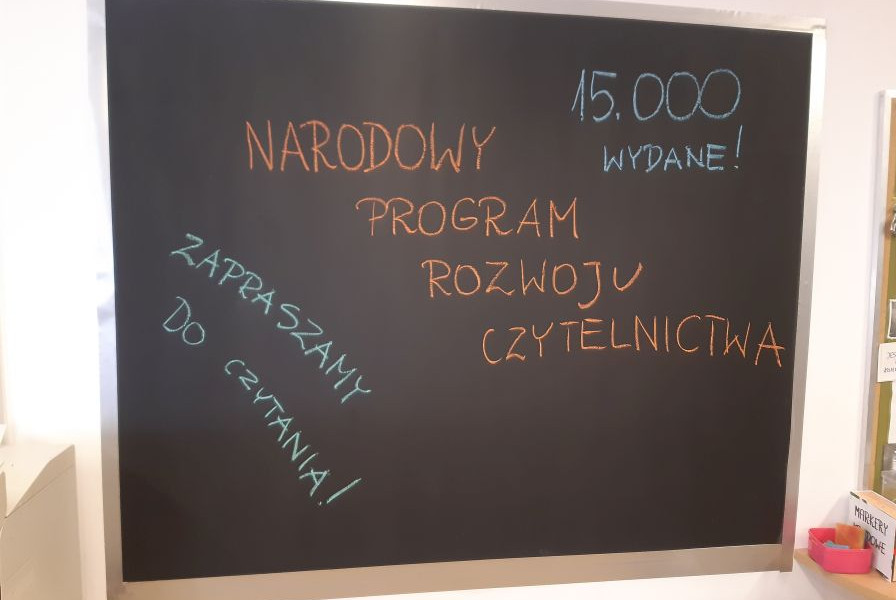 15.000
WYDANE!
NARODOWY
PROGRAM
ROZWOJU
CZYTELNICTWA
ZAPRASZAMY
DO CZYTANIA!
MARKERY